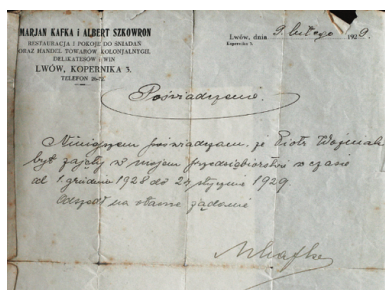 MARJAN KAFKA i ALBERT SZKOWRON
RESTAURACJA I POKOJE DO ŚNIADAŃ
ORAZ HANDEL TOWARÓW KOLONJALNYCH
DELIKATESÓW i WIN
LWÓW, KOPERNIKA 3.
TELEFON
Lwów, dnia 9. lutego 1929.
Kopernika 3.
Poświadczenie.
Niniejszem poświadczam, że Piotr Wojniak
był zajęty w mojem przedsiębiorstwie w czasie
od 1 grudnia 1928 do 24 stycznia 1929.
Odszedł na własne żądanie
MKafka